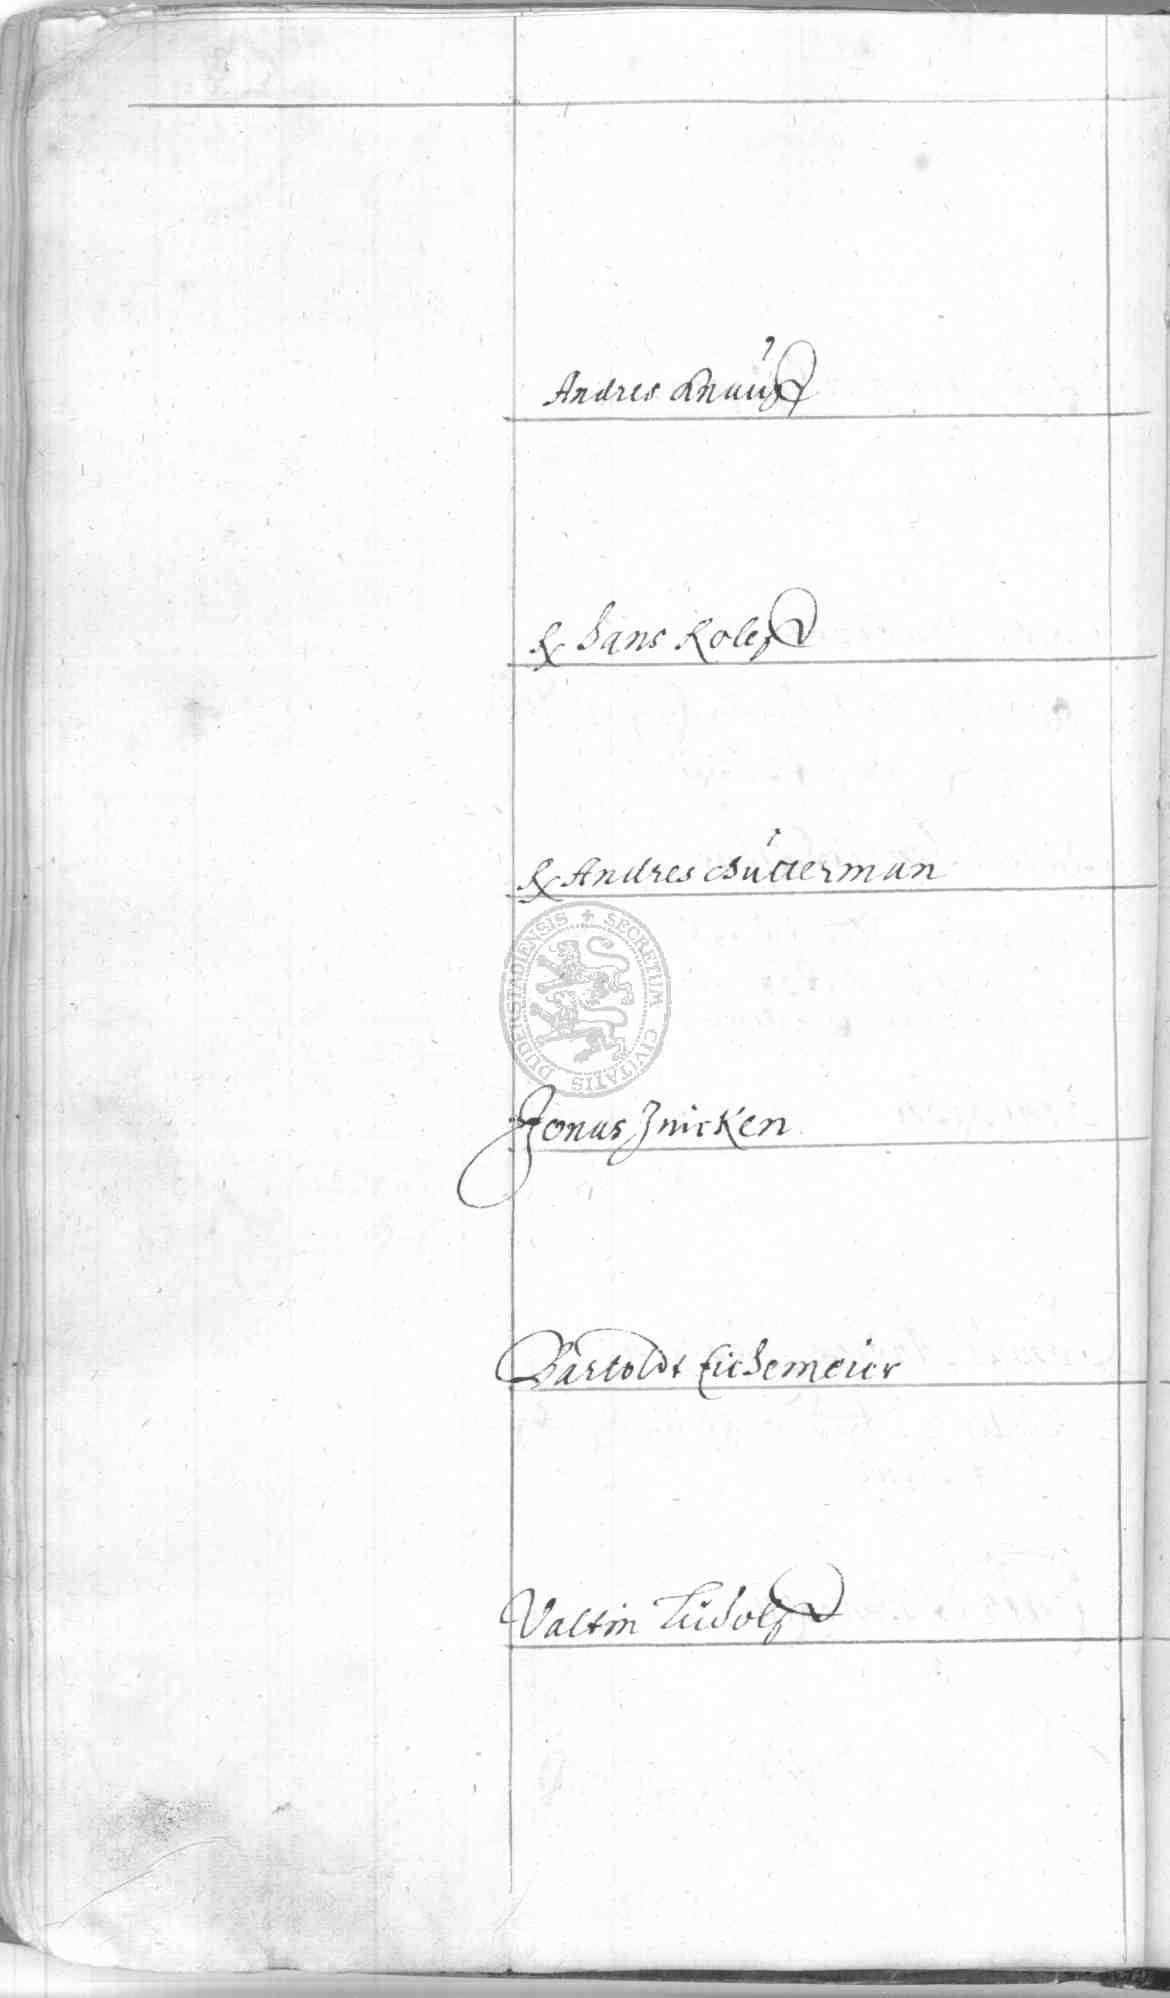 Andres Knauff
Hans Kolef
Andres Butterman
SECRETUM CIVITATIS DUDERSTADIENSIS
Jonas Znicken
Bartoldt Eichemeier
Valtin Ludolf